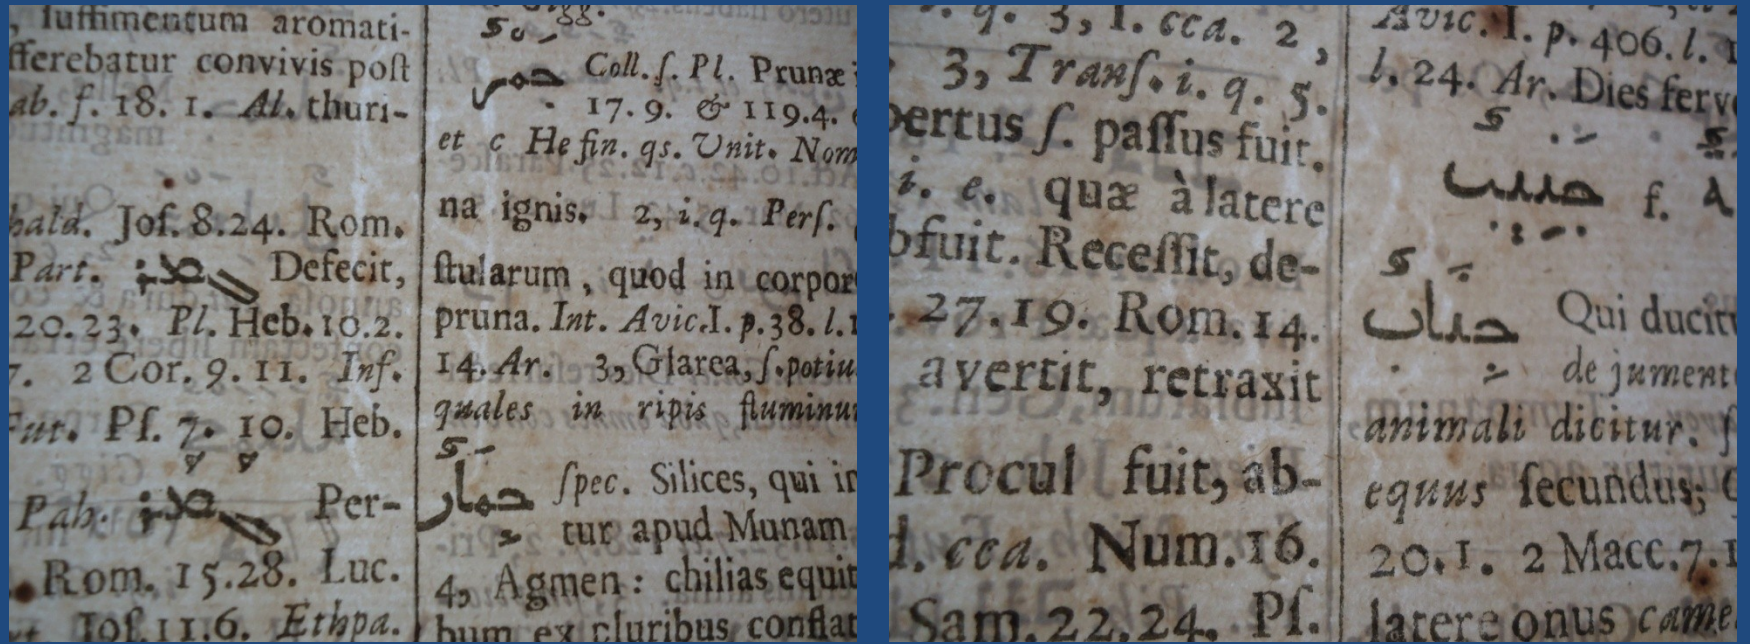 , suffimentum aromati-
fferebatur convivis post
ab. f. 18. 1. Al. thuri-
bald. Jos. 8.24. Rom.
Part. Defecit,
20.23. Pl. Heb. 10.2.
7. 2 Cor. 9. 11. Inf.
Fut. Ps. 7. 10. Heb.
Pah. Per-
Rom. 15.28. Luc.
Jos. 11.6. Ethpa.
Gigg.
جمر Coll. s. Pl. Prunæ
17.9. & 119.4.
et c He fin. qs. Unit. Nom
na ignis. 2, i.q. Pers.
stularum, quod in corpor
pruna. Int. Avic. I. p. 38. l. 1
14. Ar. 3, Glarea, s. potiu
quales in ripis fluminu
جمار spec. Silices, qui in
tur apud Munam
4, Agmen: chilias equit
bum ex pluribus conflat
q. 3, 1. cca. 2,
3, Trans. i. q. 5.
pertus s. passus fuit.
i. e. quæ à latere
bfuit. Recessit, de-
27.19. Rom. 14.
avertit, retraxit
Procul fuit, ab-
d. cca. Num. 16.
Sam. 22.24. Ps.
Avic. I. p. 406. l. 1
l. 24. Ar. Dies ferv
f.
جناب Qui ducit
de jument
animali dicitur. s
equus secundus;
20.1. 2 Macc. 7.1
latere onus came